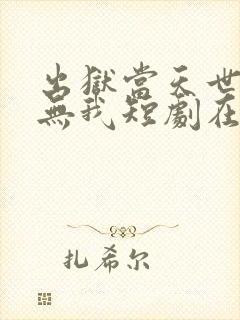 出獄當天世
無我短劇在
扎希尔